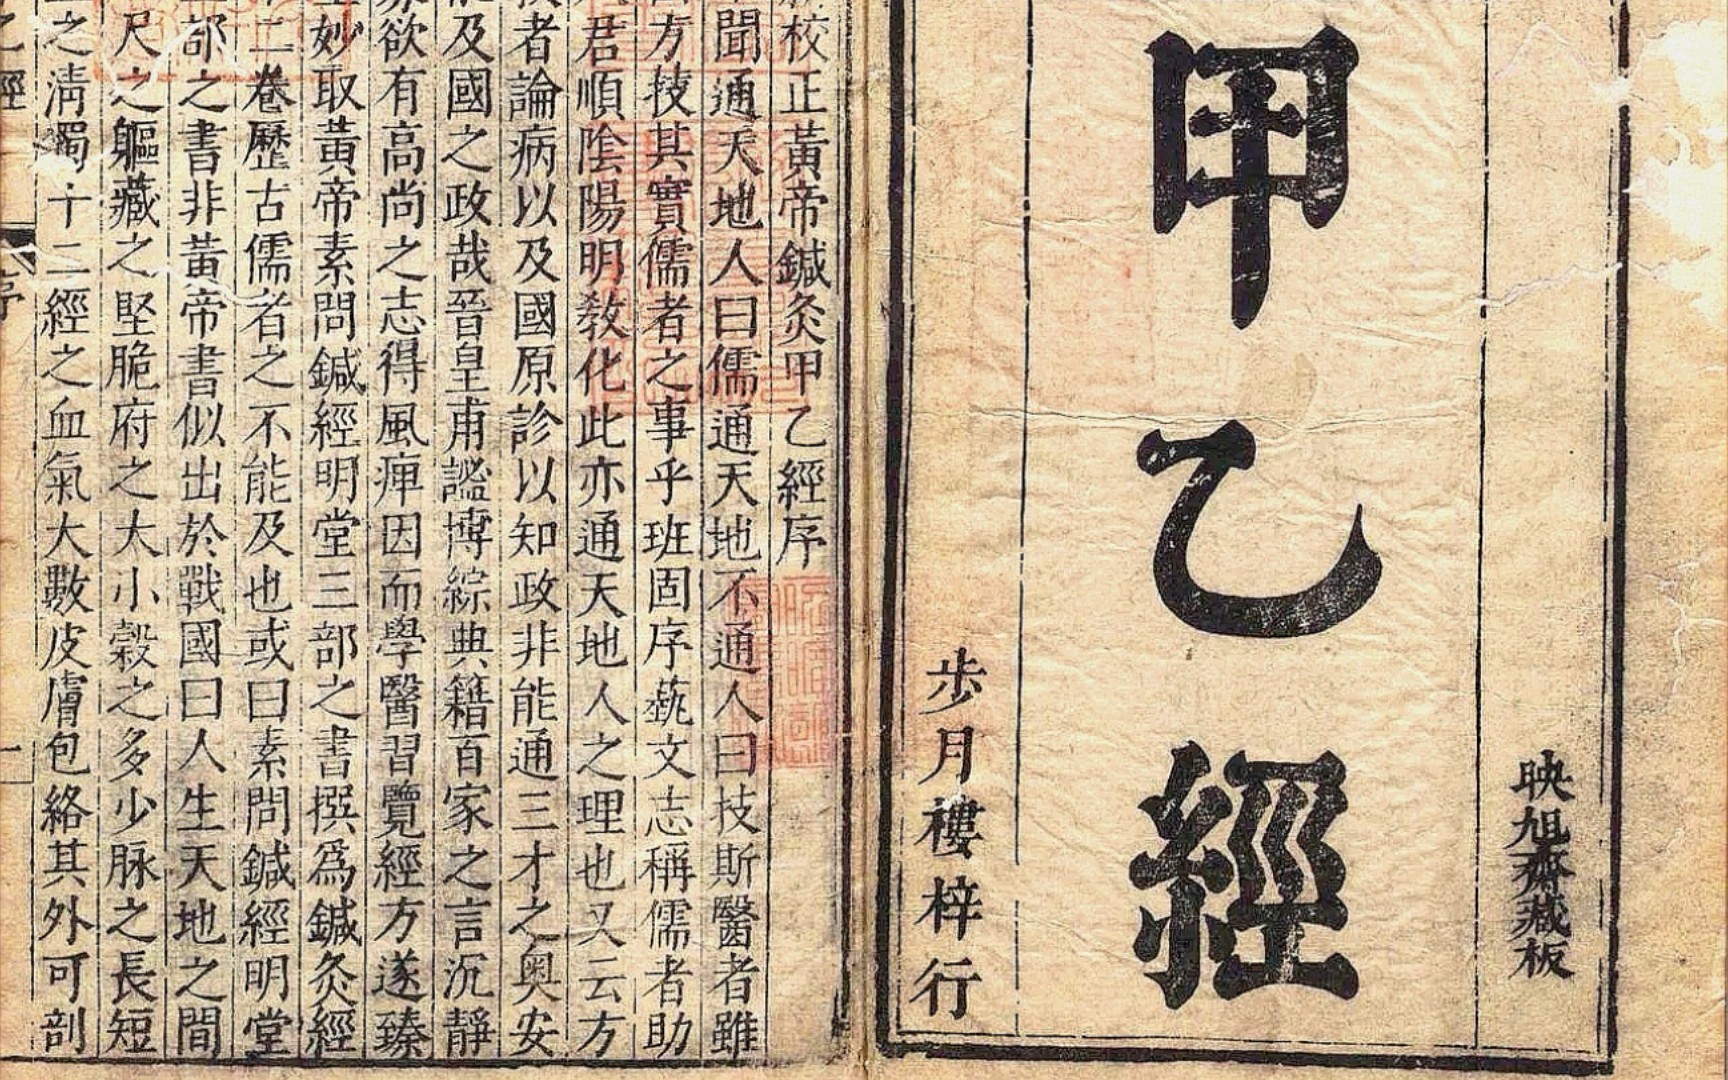 映旭齋藏板
甲乙經
步月樓梓行
校正黃帝鍼灸甲乙經序
聞通天地人曰儒通天地不通人曰技斯醫者雖
方技其實儒者之事乎班固序藝文志稱儒者助
君順陰陽明敎化此亦通天地人之理也又云方
者論病以及國原診以知政非能通三才之奥安
及國之政哉晉皇甫謐博綜典籍百家之言沉靜
欲有高尚之志得風痺因而學醫習覽經方遂臻
妙取黃帝素問鍼經明堂三部之書撰爲鍼灸經
二卷歷古儒者之不能及也或曰素問鍼經明堂
部之書非黃帝書似出於戰國曰人生天地之間
尺之軀藏之堅脆府之大小穀之多少脉之長短
之淸濁十二經之血氣大數皮膚包絡其外可剖